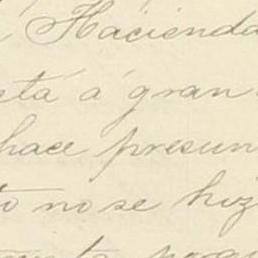 á Hacienda
stá á gran
hace presun
to no se hiz